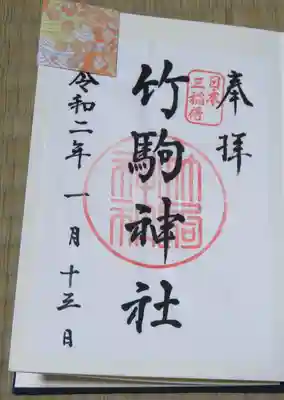 奉拝
日本
三稲荷
竹駒神社
令和二年一月十三日